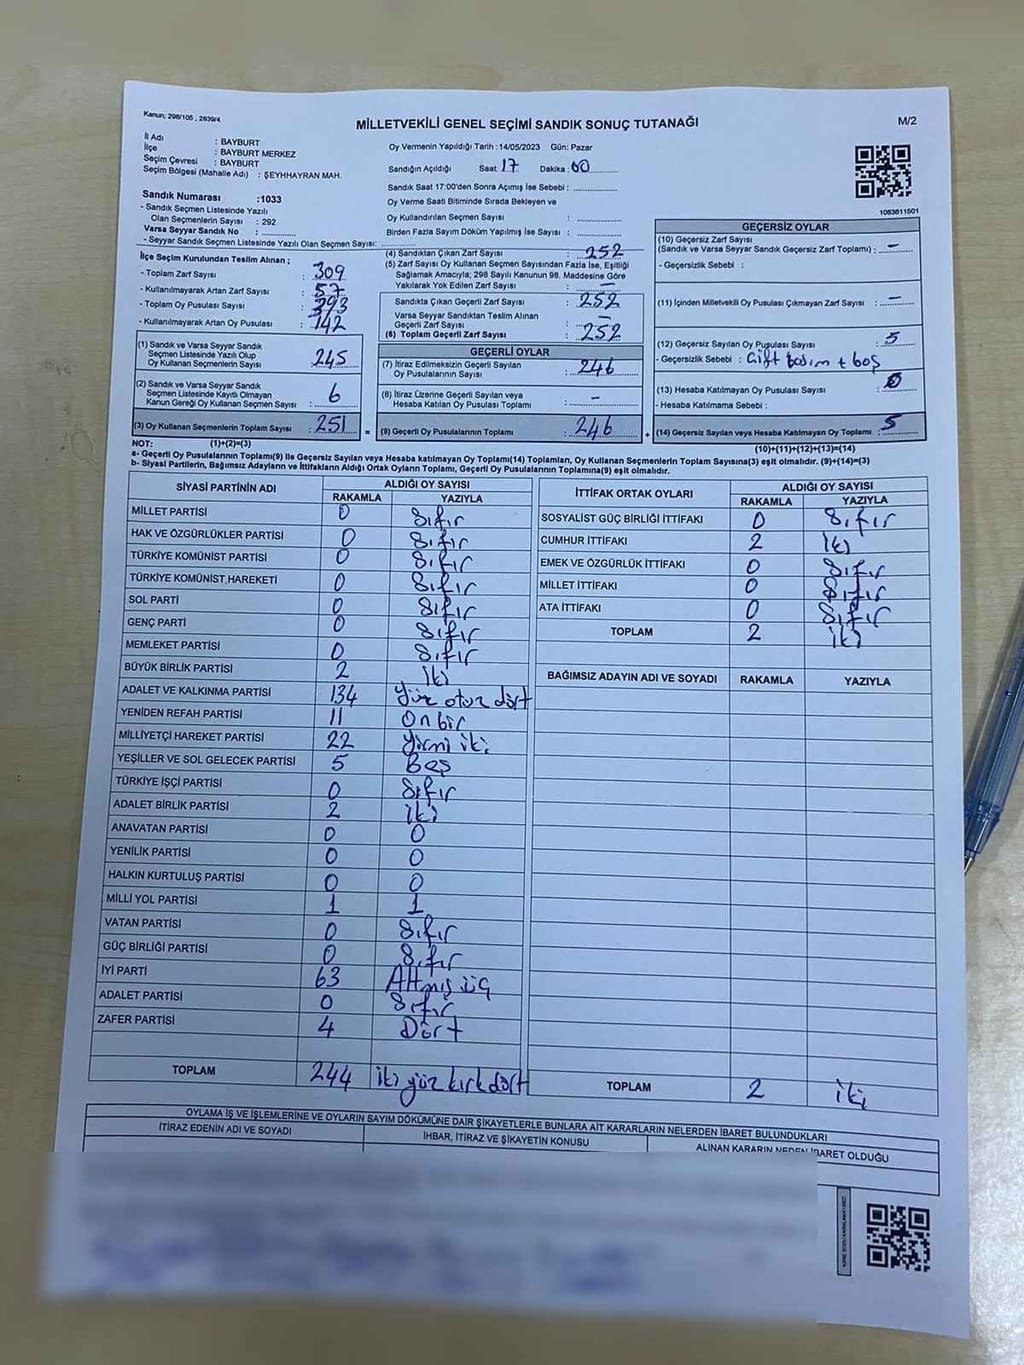 Kanun; 298/105 , 2839/4
MİLLETVEKİLİ GENEL SEÇİMİ SANDIK SONUÇ TUTANAĞI
M/2
İl Adı : BAYBURT
İlçe : BAYBURT MERKEZ
Seçim Çevresi : BAYBURT
Seçim Bölgesi (Mahalle Adı) : ŞEYHHAYRAN MAH.
Oy Vermenin Yapıldığı Tarih : 14/05/2023 Gün: Pazar
Sandığın Açıldığı Saat: 17 Dakika : 00
Sandık Saat 17:00'den Sonra Açımış İse Sebebi :
Oy Verme Saati Bitiminde Sırada Bekleyen ve
Oy Kullandırılan Seçmen Sayısı :
Birden Fazla Sayım Döküm Yapılmış İse Sayısı :
1083811501
Sandık Numarası : 1033
- Sandık Seçmen Listesinde Yazılı
Olan Seçmenlerin Sayısı : 292
Varsa Seyyar Sandık No :
- Seyyar Sandık Seçmen Listesinde Yazılı Olan Seçmen Sayısı:
İlçe Seçim Kurulundan Teslim Alınan ;
- Toplam Zarf Sayısı : 309
- Kullanılmayarak Artan Zarf Sayısı : 57
- Toplam Oy Pusulası Sayısı : 393
- Kullanılmayarak Artan Oy Pusulası : 142
(1) Sandık ve Varsa Seyyar Sandık
Seçmen Listesinde Yazılı Olup
Oy Kullanan Seçmenlerin Sayısı : 245
(2) Sandık ve Varsa Seyyar Sandık
Seçmen Listesinde Kayıtlı Olmayan
Kanun Gereği Oy Kullanan Seçmen Sayısı : 6
(3) Oy Kullanan Seçmenlerin Toplam Sayısı : 251
(4) Sandıktan Çıkan Zarf Sayısı : 252
(5) Zarf Sayısı Oy Kullanan Seçmen Sayısından Fazla İse, Eşitliği
Sağlamak Amacıyla; 298 Sayılı Kanunun 98. Maddesine Göre
Yakılarak Yok Edilen Zarf Sayısı : –
Sandıkta Çıkan Geçerli Zarf Sayısı : 252
Varsa Seyyar Sandıktan Teslim Alınan
Geçerli Zarf Sayısı : –
(6) Toplam Geçerli Zarf Sayısı : 252
GEÇERLİ OYLAR
(7) İtiraz Edilmeksizin Geçerli Sayılan
Oy Pusulalarının Sayısı : 246
(8) İtiraz Üzerine Geçerli Sayılan veya
Hesaba Katılan Oy Pusulası Toplamı : –
= (9) Geçerli Oy Pusulalarının Toplamı : 246
GEÇERSİZ OYLAR
(10) Geçersiz Zarf Sayısı
(Sandık ve Varsa Seyyar Sandık Geçersiz Zarf Toplamı) : –
- Geçersizlik Sebebi :
(11) İçinden Milletvekili Oy Pusulası Çıkmayan Zarf Sayısı : –
(12) Geçersiz Sayılan Oy Pusulası Sayısı : 5
- Geçersizlik Sebebi : Çift basım + boş
(13) Hesaba Katılmayan Oy Pusulası Sayısı : 0
- Hesaba Katılmama Sebebi :
+ (14) Geçersiz Sayılan veya Hesaba Katılmayan Oy Toplamı : 5
NOT: (1)+(2)=(3) (10)+(11)+(12)+(13)=(14)
a- Geçerli Oy Pusulalarının Toplamı(9) ile Geçersiz Sayılan veya Hesaba Katılmayan Oy Toplamı(14) Toplamları, Oy Kullanan Seçmenlerin Toplam Sayısına(3) eşit olmalıdır. (9)+(14)=(3)
b- Siyasi Partilerin, Bağımsız Adayların ve İttifakların Aldığı Ortak Oyların Toplamı, Geçerli Oy Pusulalarının Toplamına(9) eşit olmalıdır.
SİYASİ PARTİNİN ADI ALDIĞI OY SAYISI
RAKAMLA YAZIYLA
MİLLET PARTİSİ 0 Sıfır
HAK VE ÖZGÜRLÜKLER PARTİSİ 0 Sıfır
TÜRKİYE KOMÜNİST PARTİSİ 0 Sıfır
TÜRKİYE KOMÜNİST HAREKETİ 0 Sıfır
SOL PARTİ 0 Sıfır
GENÇ PARTİ 0 Sıfır
MEMLEKET PARTİSİ 0 Sıfır
BÜYÜK BİRLİK PARTİSİ 2 iki
ADALET VE KALKINMA PARTİSİ 134 Yüz otuz dört
YENİDEN REFAH PARTİSİ 11 On bir
MİLLİYETÇİ HAREKET PARTİSİ 22 Yirmi iki
YEŞİLLER VE SOL GELECEK PARTİSİ 5 Beş
TÜRKİYE İŞÇİ PARTİSİ 0 Sıfır
ADALET BİRLİK PARTİSİ 2 iki
ANAVATAN PARTİSİ 0 0
YENİLİK PARTİSİ 0 0
HALKIN KURTULUŞ PARTİSİ 0 0
MİLLİ YOL PARTİSİ 1 1
VATAN PARTİSİ 0 Sıfır
GÜÇ BİRLİĞİ PARTİSİ 0 Sıfır
İYİ PARTİ 63 Altmış üç
ADALET PARTİSİ 0 Sıfır
ZAFER PARTİSİ 4 Dört
TOPLAM 244 iki yüz kırk dört
İTTİFAK ORTAK OYLARI ALDIĞI OY SAYISI
RAKAMLA YAZIYLA
SOSYALİST GÜÇ BİRLİĞİ İTTİFAKI 0 Sıfır
CUMHUR İTTİFAKI 2 iki
EMEK VE ÖZGÜRLÜK İTTİFAKI 0 Sıfır
MİLLET İTTİFAKI 0 Sıfır
ATA İTTİFAKI 0 Sıfır
TOPLAM 2 iki
BAĞIMSIZ ADAYIN ADI VE SOYADI RAKAMLA YAZIYLA
TOPLAM 2 iki
OYLAMA İŞ VE İŞLEMLERİNE VE OYLARIN SAYIM DÖKÜMÜNE DAİR ŞİKAYETLERLE BUNLARA AİT KARARLARIN NELERDEN İBARET BULUNDUKLARI
İTİRAZ EDENİN ADI VE SOYADI İHBAR, İTİRAZ VE ŞİKAYETİN KONUSU ALINAN KARARIN NEDEN İBARET OLDUĞU